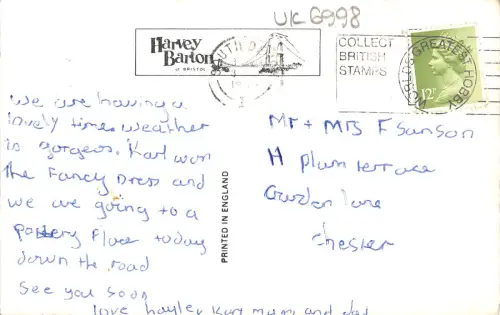 UK G998
Harvey
Barton
OF BRISTOL
COLLECT
BRITISH
STAMPS
WORLDS GREATEST HOBBY
12P
we are having a
lovely time weather
is gorgeous. Karl won
the Fancy Dress and
we are going to a
pottery place today
down the road
See you soon
love hayley Karl mum and dad
PRINTED IN ENGLAND
Mr + Mrs F Sanson
11 plum terrace
Garden lane
chester